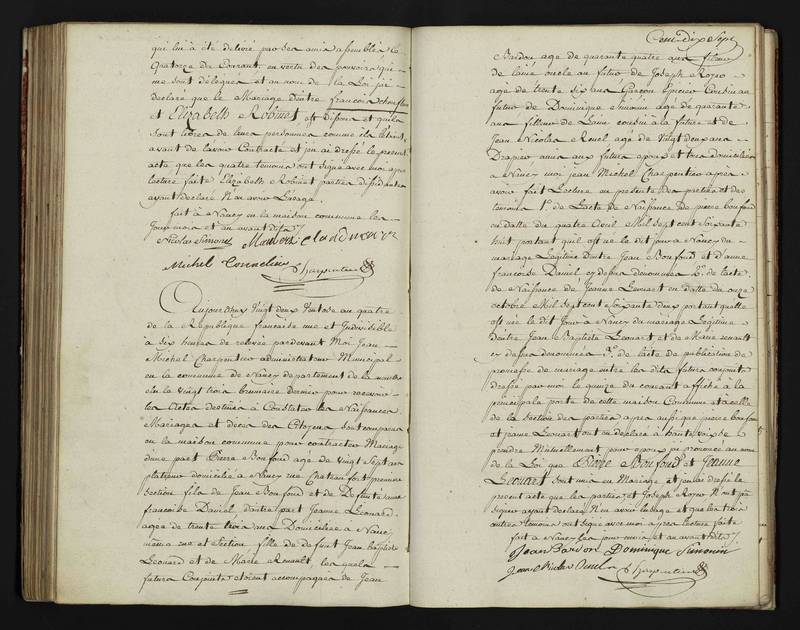 qui lui a été délivré par ses amis assemblés le
quatorze du Courant, en vertu des pouvoirs qui
me sont délégués et au nom de la Loi j'ai
déclaré que le Mariage d'entre françois
et Elizabeth Robinet, est dissous et qu'ils
sont libres de leurs personnes comme ils l'étoient
avant de l'avoir Contracté et j'en ai dressé le présent
acte que les quatre témoins ont signé avec moi après
lecture faite Elizabeth Robinet
ayant déclaré N'en avoir L'usage.
fait à Nancy en la maison commune les
Jour mois et an avant dits
Nicolas Simonet
Michel Cornelius
Charpentier
Aujourd'huy Vingt deux Ventose an quatre
de la République française une et Indivisible
à six heures de relevée pardevant Moi Jean
Michel Charpentier administrateur Municipal
en la commune de Nancy département de la meurthe
élu le vingt trois brumaire dernier pour recevoir
les Actes destinés à Constater les Naissances
Mariages et décès des Citoyens sont comparus
en la maison commune pour contracter Mariage
d'une part Pierre Bonfond agé de vingt Sept ans
platineur domicilié à Nancy rue Chateaufort première
Section fils de Jean Bonfond et de Deffunte anne
françoise Daniel, d'autre part Jeanne Léonard
agée de trente trois ans Domiciliée à Nancy
même rue et Section fille de deffunt Jean baptiste
Leonard et de Marie Renault, lesquels
futurs Conjoints étoient accompagnés de Jean
Cent dix Sept
Bardon agé de quarante quatre ans
de laine oncle au futur de Joseph Royer
agé de trente six ans Garçon Epicier Cousin au
futur de Dominique Simonin agé de quarante
ans fileur de Laine cousin à la future et de
Jean Nicolas Ruel agé de vingt deux ans
Drapier amis aux futurs époux et tous domiciliés
à Nancy moi Jean Michel Charpentier après
avoir fait Lecture en présence des parties et des
témoins 1°. de l'acte de Naissance de pierre bonfond
en datte du quatre Avril Mil sept cent soixante
huit portant qu'il est né le dit jour à Nancy du
mariage Légitime d'entre Jean Bonfond et d'anne
françoise Daniel cy dessus dénommés 2°. de l'acte
de Naissance de Jeanne Léonard en datte du onze
octobre Mil sept cent soixante deux portant qu'elle
est née le dit Jour à Nancy du mariage Légitime
d'entre Jean Baptiste Leonard et de Marie renault
cy dessus dénommés 3°. de l'acte de publication de
promesse de mariage entre les dits futurs conjoints
dressé par moi le quinze du courant affiché à la
principale porte de cette maison Commune et à celle
de la section des parties après aussi que pierre bonfond
et jeanne Leonard ont eu déclaré à haute voix se
prendre Mutuellement pour époux j'ai prononcé au nom
de la Loi que Pierre Bonfond et Jeanne
Leonard Sont unis en Mariage et j'en ai dressé le
présent acte que les parties et Joseph Royer N'ont pu
signer ayant déclaré N'en avoir l'usage et que les trois
autres témoins ont signé avec moi après lecture faite
fait à Nancy les jour mois et an avant dits
Jean Bardon Dominique Simonin
Jean Nicolas Ruel Charpentier